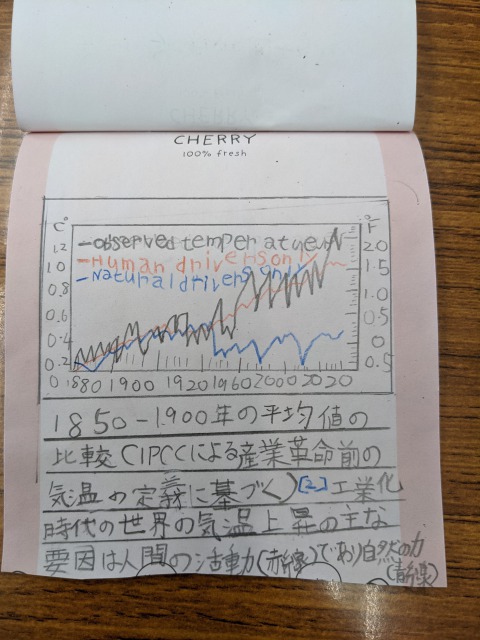 CHERRY
100% fresh
C° °F
observed temperatueur
Human driversonly
Natural drivers only
1.2
1.0
0.8
0.6
0.4
0.2
0
2.0
1.5
1.0
0.5
0
0.5
1880 1900 1920 1960 2000 2020
1850-1900年の平均値の
比較CIPCCによる産業革命前の
気温の定義に基づく)[2]工業化
時代の世界の気温上昇の主な
要因は人間の活動(赤線)であり自然の力
(青線)